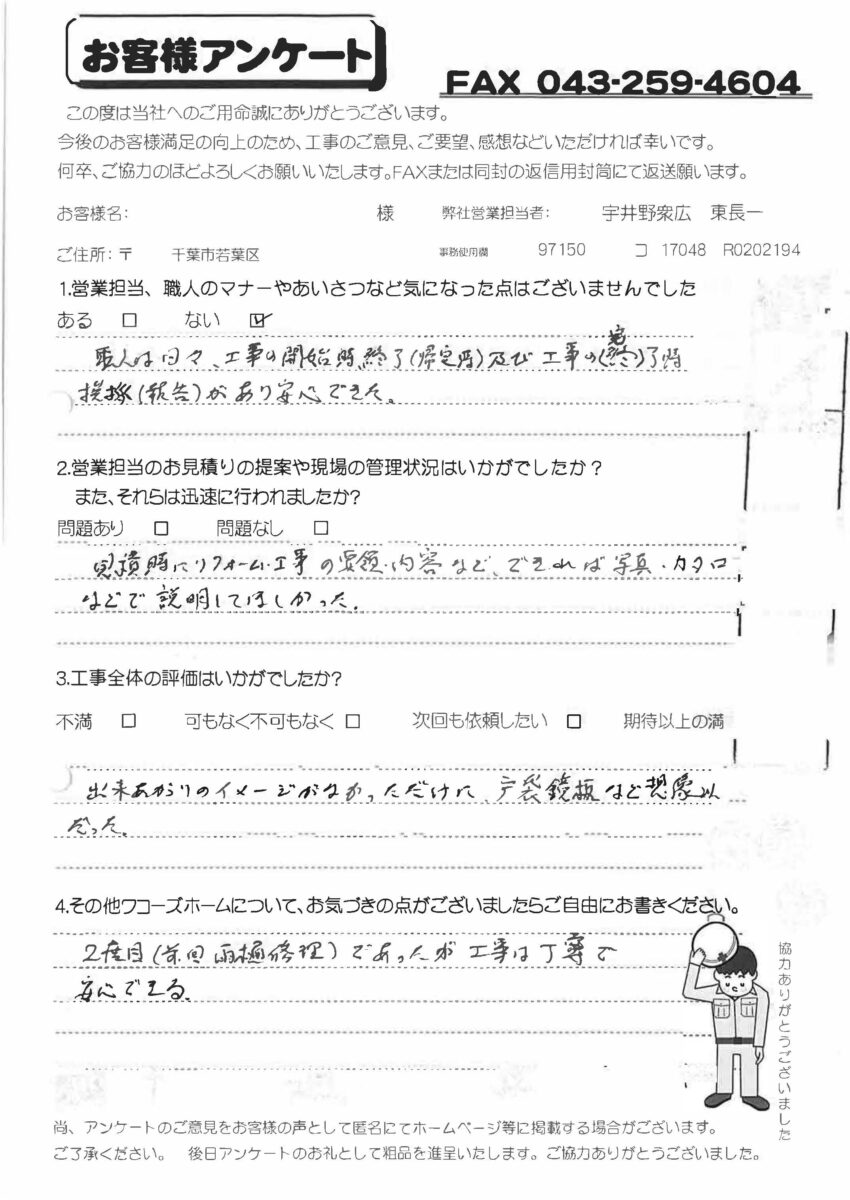 お客様アンケート
FAX 043-259-4604
この度は当社へのご用命誠にありがとうございます。
今後のお客様満足の向上のため、工事のご意見、ご要望、感想などいただければ幸いです。
何卒、ご協力のほどよろしくお願いいたします。FAXまたは同封の返信用封筒にて返送願います。
お客様名: 様 弊社営業担当者: 宇井野衆広 東長一
ご住所:〒 千葉市若葉区 事務使用欄 97150 コ 17048 R0202194
1.営業担当、職人のマナーやあいさつなど気になった点はございませんでした
ある □ ない ☑
職人は日々、工事の開始時、終了(帰宅時)及び工事の(終)完了時
挨拶(報告)があり安心できた。
2.営業担当のお見積りの提案や現場の管理状況はいかがでしたか?
また、それらは迅速に行われましたか?
問題あり □ 問題なし □
見積時にリフォーム・工事の要領・内容など、できれば写真・カタロ
などで説明してほしかった。
3.工事全体の評価はいかがでしたか?
不満 □ 可もなく不可もなく □ 次回も依頼したい □ 期待以上の満
出来あがりのイメージがなかっただけに、戸袋鏡板など想像以
だった。
4.その他ワコーズホームについて、お気づきの点がございましたらご自由にお書きください。
2度目(前回雨樋修理)であったが工事は丁寧で
安心できる。
協力ありがとうございました
尚、アンケートのご意見をお客様の声として匿名にてホームページ等に掲載する場合がございます。
ご了承ください。 後日アンケートのお礼として粗品を進呈いたします。ご協力ありがとうございました。